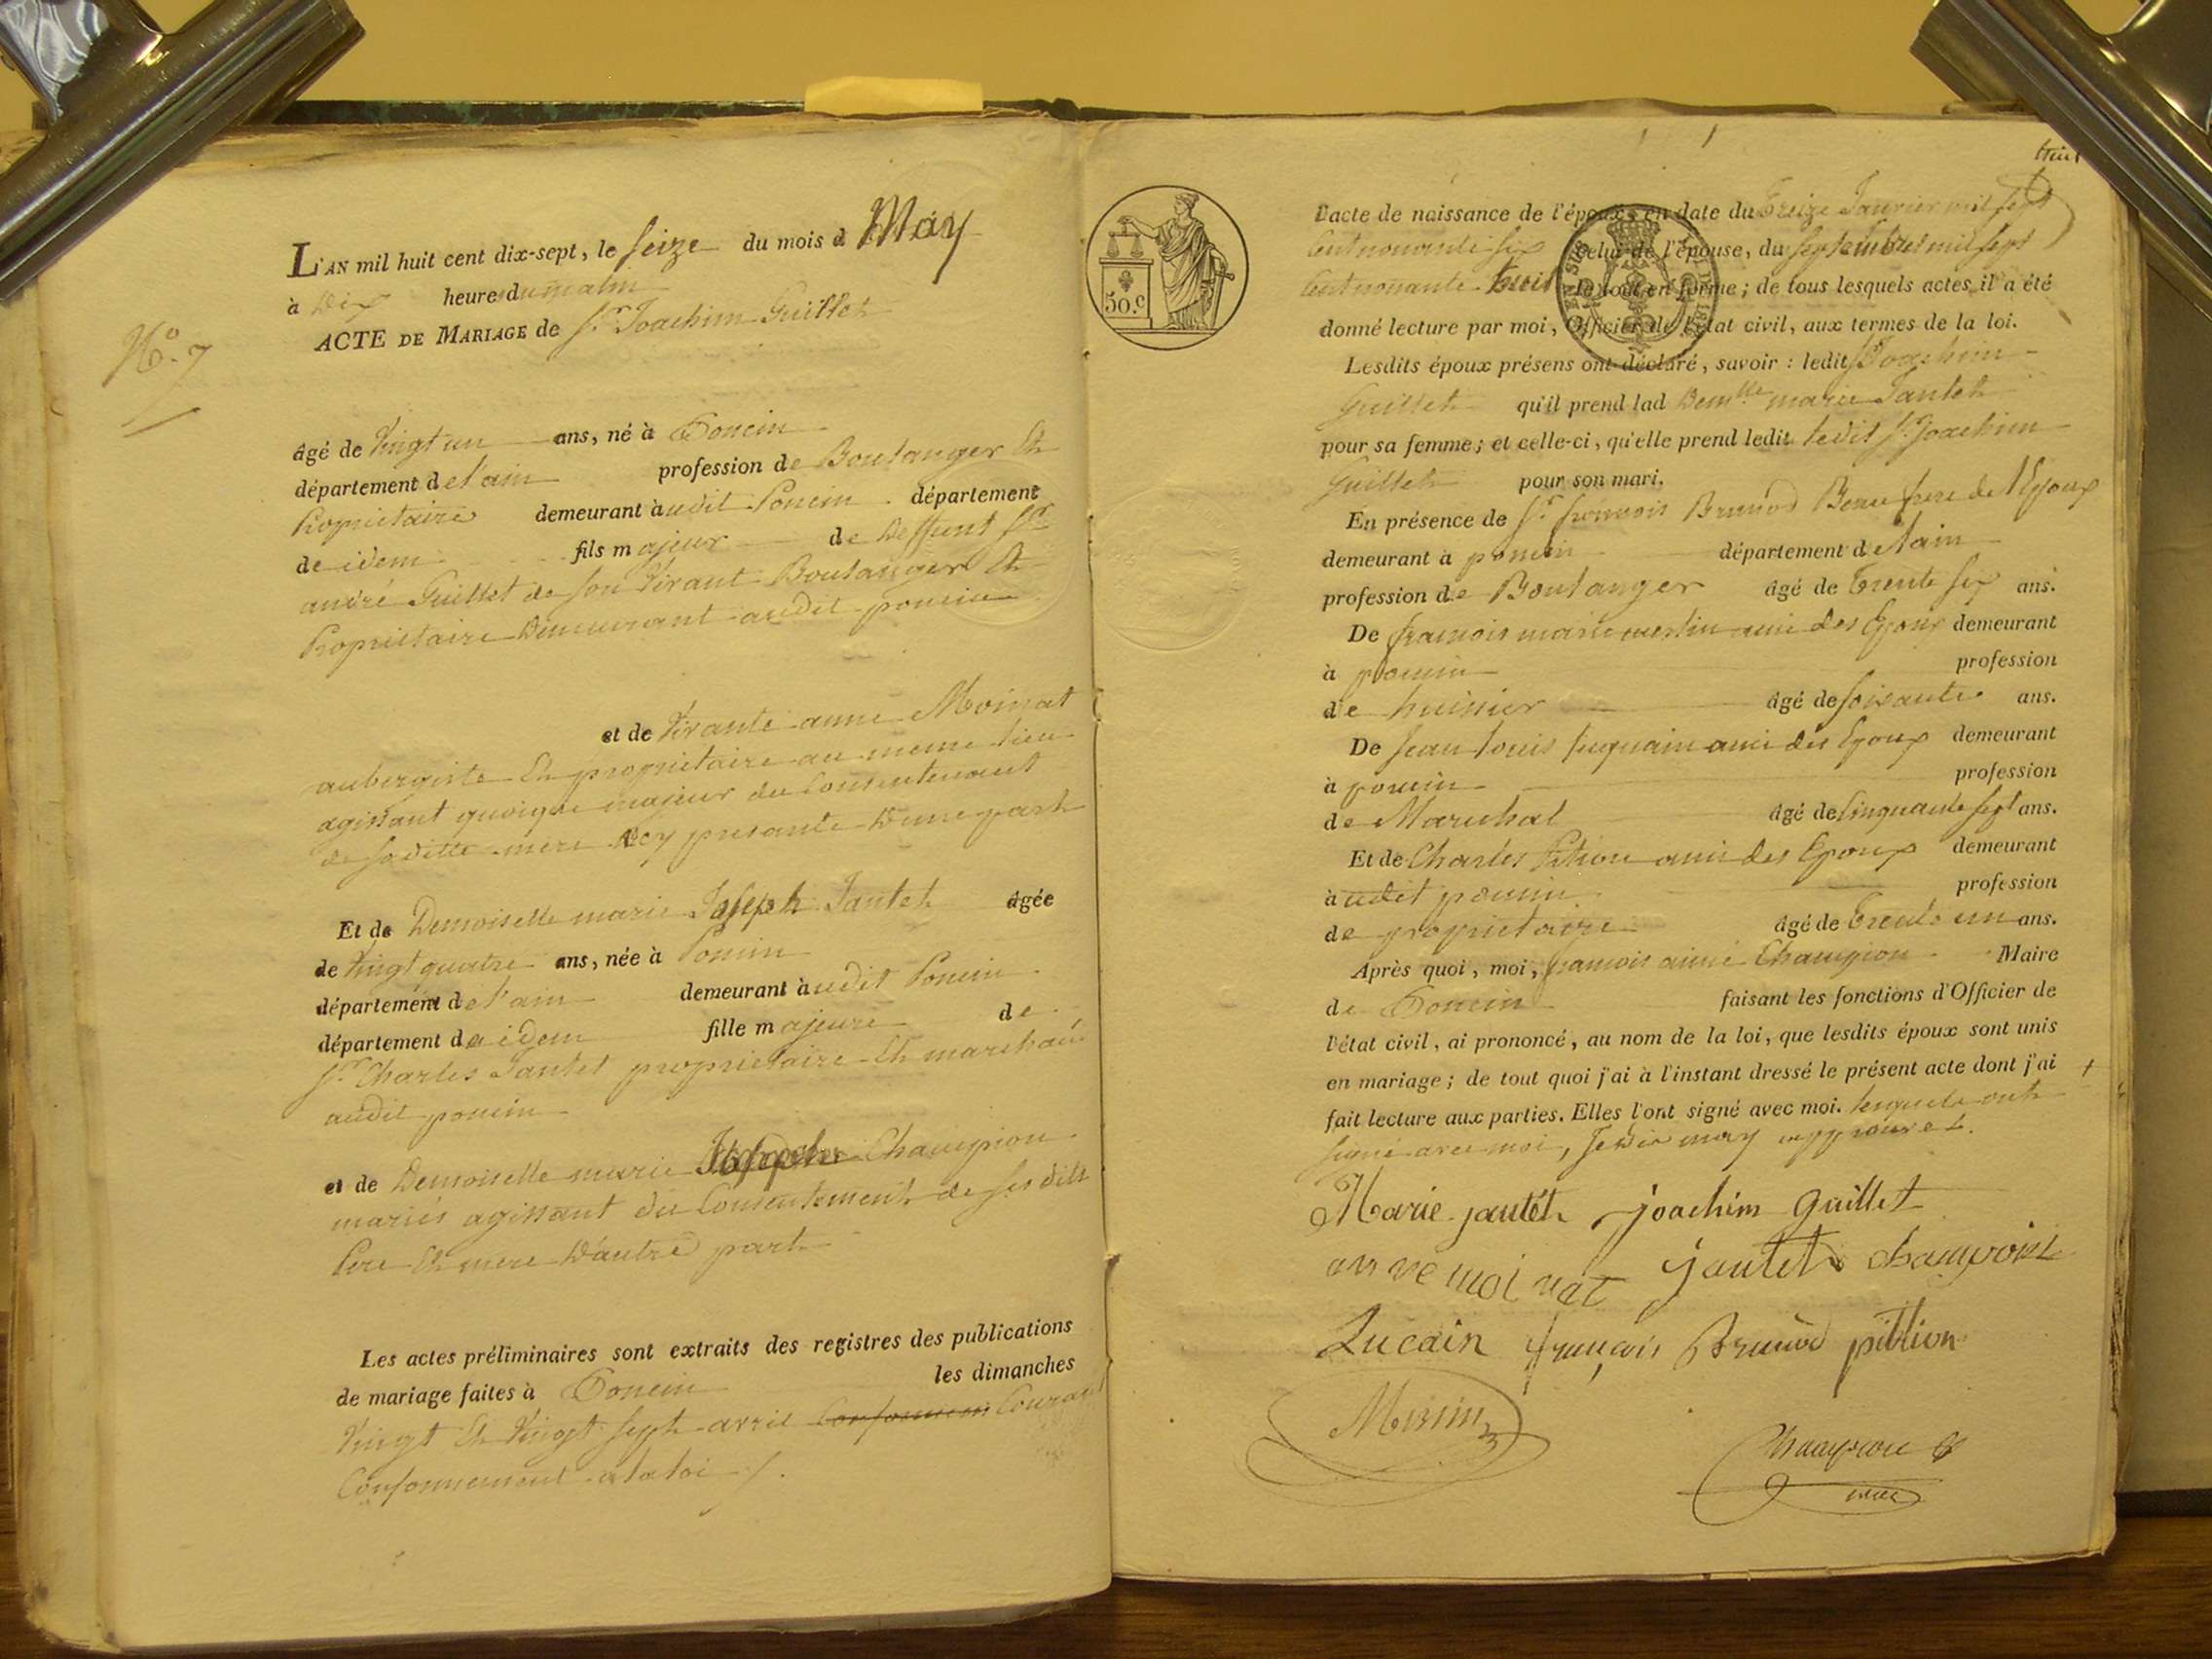 N.o 7
L'AN mil huit cent dix-sept, le seize du mois d May
à Dix heures du matin
ACTE DE MARIAGE de Sr. Joachim Guillet
âgé de vingt un ans, né à Poncin
département de l'ain profession de Boulanger Et
Propriétaire demeurant audit Poncin département
de idem fils majeur de Deffunt Sr.
andré Guillet de son vivant Boulanger Et
Propriétaire Demeurant audit poncin
et de vivante anne Moinat
aubergiste Et propriétaire au meme lieu
agissant quoique majeur du
de saditte mere icy presente D'une part
Et de Demoiselle marie Joseph Jantet âgée
de vingt quatre ans, née à Poncin
département de l'ain demeurant audit Poncin
département de idem fille majeure de
Sr. Charles Jantet propriétaire Et marchand
audit poncin
et de Demoiselle marie Champion
mariés agissant du Consentement de ses dits
Pere Et mere D'autre part
Les actes préliminaires sont extraits des registres des publications
de mariage faites à Poncin les dimanches
vingt Et vingt sept avril Courant
Conformement a la loi
50.c
L'acte de naissance de l'époux en date du Treize Janvier mil sept
Cent nonante six celui de l'épouse, du septembre mil sept
Cent nonante le tout en forme; de tous lesquels actes il a été
donné lecture par moi, Officier de l'état civil, aux termes de la loi.
Lesdits époux présens ont déclaré, savoir: ledit Sr. Joachim
Guillet qu'il prend lad Demlle marie Jantet
pour sa femme; et celle-ci, qu'elle prend ledit ledit Sr. Joachim
Guillet pour son mari.
En présence de Sr. françois Brunod Beau frere de l'Epoux
demeurant à poncin département de l'ain
profession de Boulanger âgé de Trente six ans.
De françois marie ami des Epoux demeurant
à poncin profession
de huissier âgé de soixante ans.
De Jean Louis ami des Epoux demeurant
à poncin profession
de Marechal âgé de Cinquante sept ans.
Et de Charles ami des Epoux demeurant
audit poncin profession
de propriétaire âgé de Trente un ans.
Après quoi, moi, françois aimé Champion Maire
de Poncin faisant les fonctions d'Officier de
l'état civil, ai prononcé, au nom de la loi, que lesdits époux sont unis
en mariage; de tout quoi j'ai à l'instant dressé le présent acte dont j'ai
fait lecture aux parties. Elles l'ont signé avec moi. lesquels ont
signé avec moi, may approuvé.
Marie jantet joachim guillet
anne moinat jantet
Lucain françois Brunod pittion
Champion